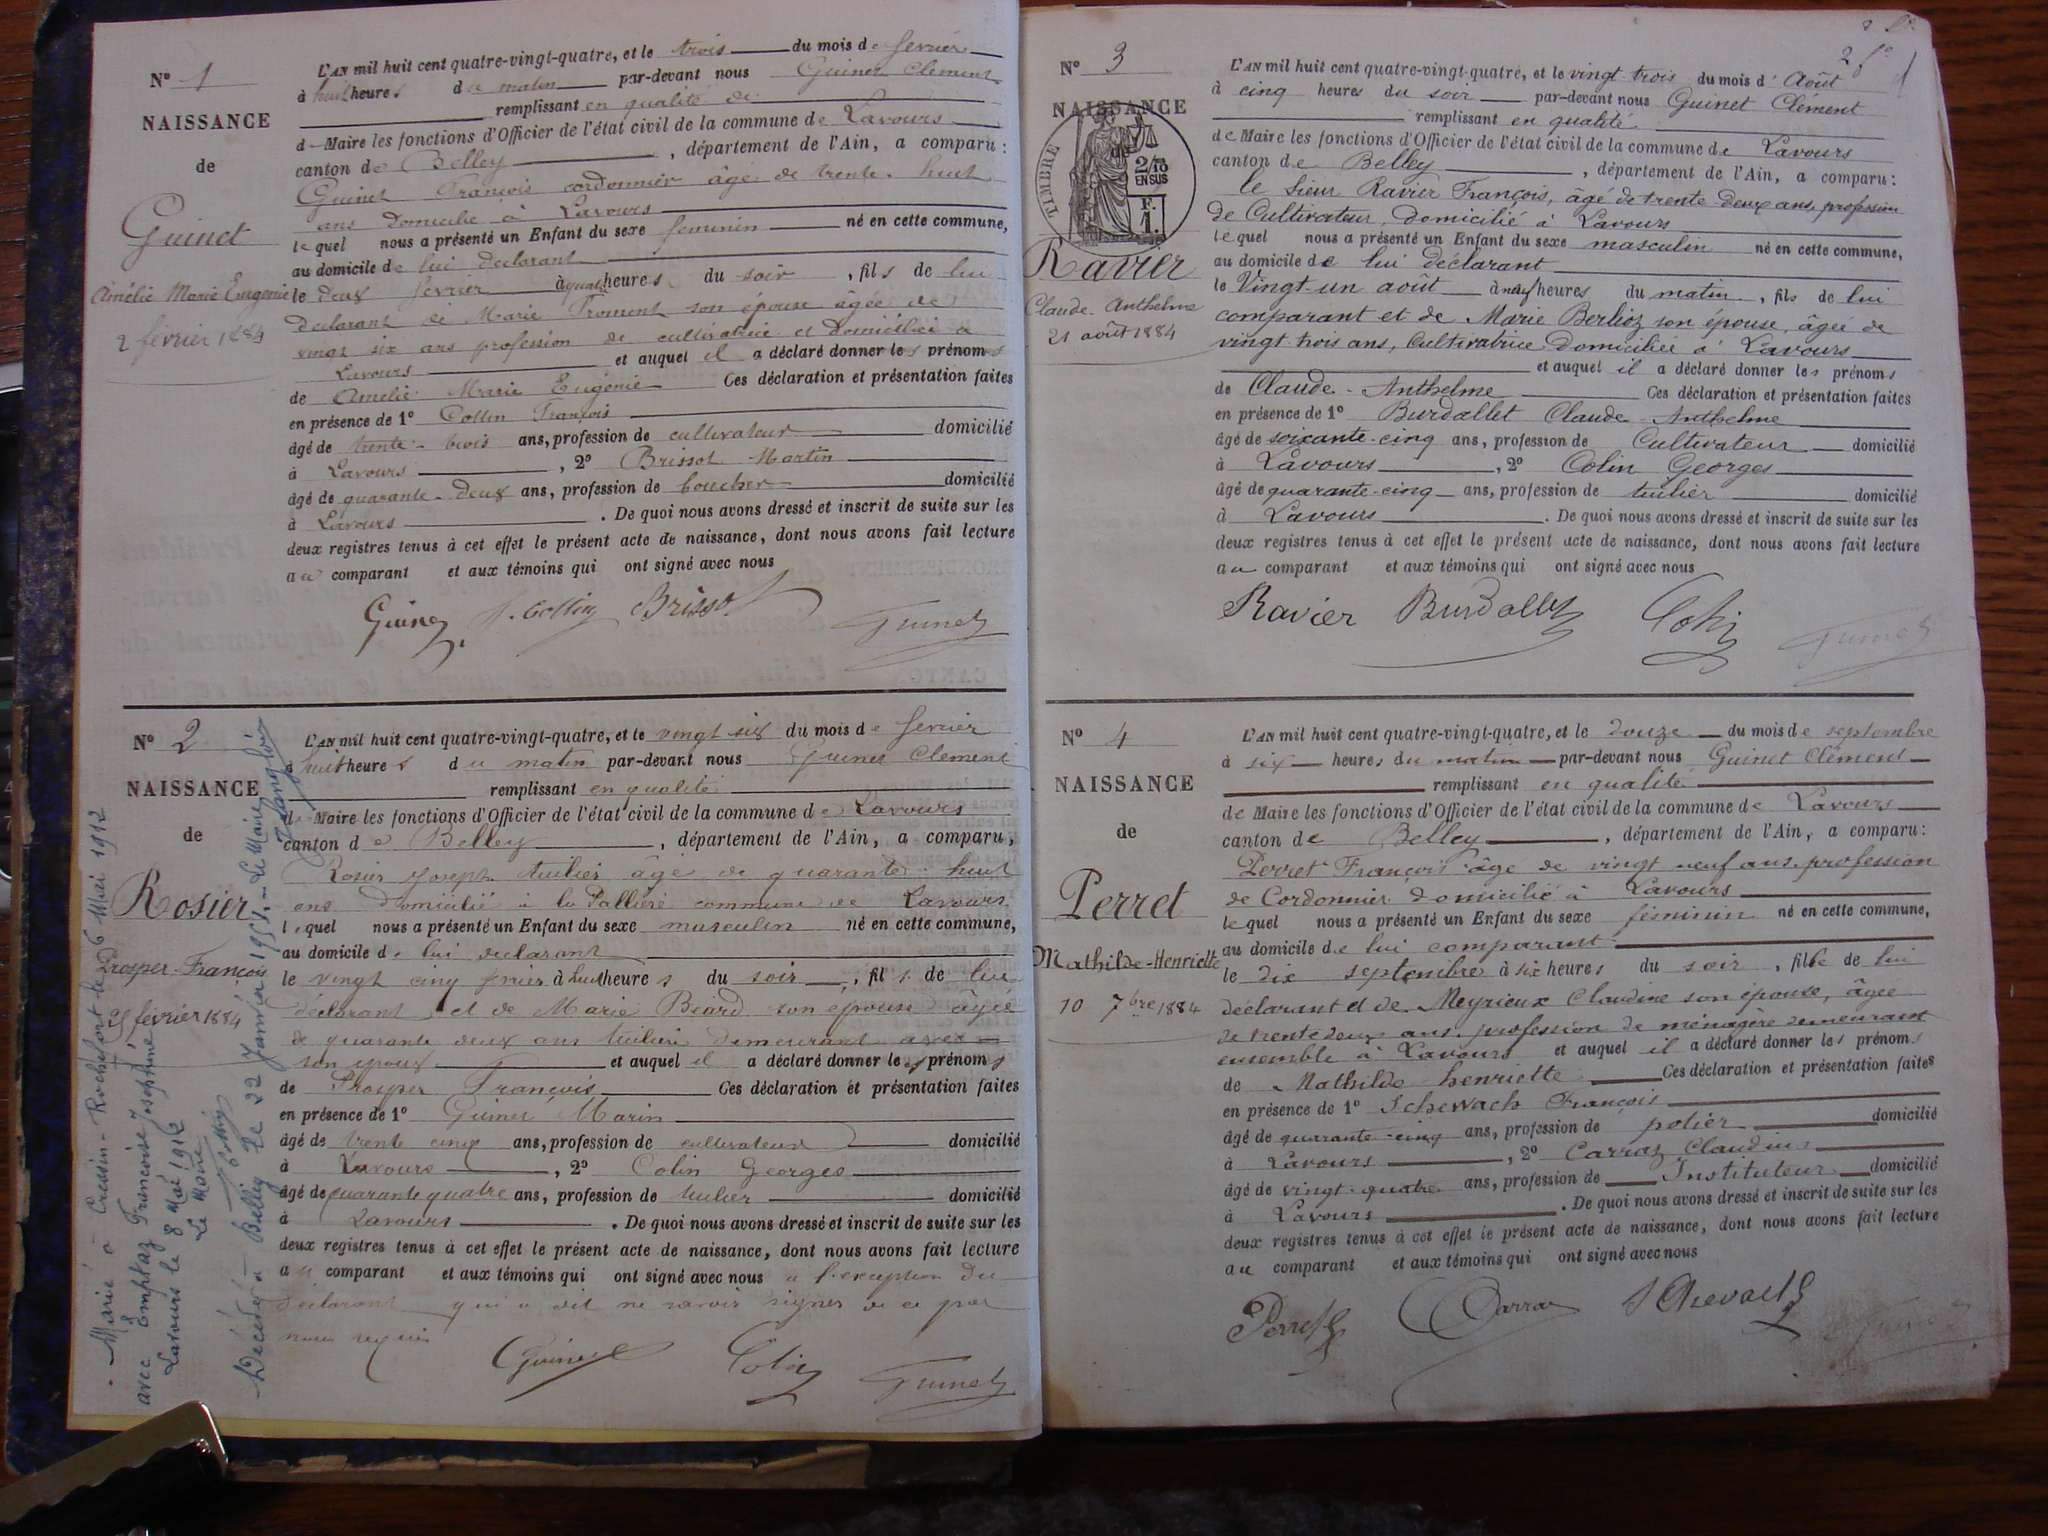 N° 1
NAISSANCE
de
Guinet
Amélie Marie Eugenie
2 février 1884
L'AN mil huit cent quatre-vingt-quatre, et le trois du mois de fevrier
à huit heures du matin par-devant nous Guinet Clément
remplissant en qualité de
d Maire les fonctions d'Officier de l'état civil de la commune de Lavours
canton de Belley, département de l'Ain, a comparu:
Guinet François cordonnier âgé de trente-huit
ans domicilié à Lavours
lequel nous a présenté un Enfant du sexe feminin né en cette commune,
au domicile de lui declarant
le deux fevrier à quatre heures du soir, fils de lui
declarant et de Marie Froment son épouse âgée de
vingt six ans profession de cultivatrice et domiciliée à
Lavours et auquel il a déclaré donner les prénoms
de Amélie Marie Eugénie Ces déclaration et présentation faites
en présence de 1° Collin François
âgé de trente-trois ans, profession de cultivateur domicilié
à Lavours, 2° Brissot Martin
âgé de quarante-deux ans, profession de boucher domicilié
à Lavours. De quoi nous avons dressé et inscrit de suite sur les
deux registres tenus à cet effet le présent acte de naissance, dont nous avons fait lecture
au comparant et aux témoins qui ont signé avec nous
Guinet F. Collin Brissot Guinet
N° 2
NAISSANCE
de
Rosier
Prosper-François
25 février 1884
Marié à Cressin-Rochefort le 6 Mai 1912
avec Françoise Josephine
Lavours le 8 Mai 1912
Le Maire
Décédé à Belley le 22 Janvier 1951. Le Maire
L'AN mil huit cent quatre-vingt-quatre, et le vingt six du mois de fevrier
à huit heures du matin par-devant nous Guinet Clément
remplissant en qualité
de Maire les fonctions d'Officier de l'état civil de la commune de Lavours
canton de Belley, département de l'Ain, a comparu,
Rosier Joseph tuilier âgé de quarante-huit
ans domicilié à la Pallière commune de Lavours
lequel nous a présenté un Enfant du sexe masculin né en cette commune,
au domicile de lui declarant
le vingt cinq à huit heures du soir, fils de lui
déclarant et de Marie Beard son épouse âgée
de quarante deux ans tuilière demeurant avec
son epoux et auquel il a déclaré donner les prénoms
de Prosper François Ces déclaration et présentation faites
en présence de 1° Guinet Marin
âgé de trente cinq ans, profession de cultivateur domicilié
à Lavours, 2° Colin Georges
âgé de quarante quatre ans, profession de tuilier domicilié
à Lavours. De quoi nous avons dressé et inscrit de suite sur les
deux registres tenus à cet effet le présent acte de naissance, dont nous avons fait lecture
au comparant et aux témoins qui ont signé avec nous a l'exception du
déclarant qui a dit ne savoir signer de ce par
nous requis
Guinet Colin Guinet
2 f°
N° 3
NAISSANCE
TIMBRE
2/10
EN SUS
F.
1.
Ravier
Claude-Anthelme
21 août 1884
L'AN mil huit cent quatre-vingt-quatre, et le vingt trois du mois d'Août
à cinq heures du soir par-devant nous Guinet Clément
remplissant en qualité
de Maire les fonctions d'Officier de l'état civil de la commune de Lavours
canton de Belley, département de l'Ain, a comparu:
le Sieur Ravier François, âgé de trente deux ans, profession
de Cultivateur, domicilié à Lavours
lequel nous a présenté un Enfant du sexe masculin né en cette commune,
au domicile de lui déclarant
le Vingt-un août à neuf heures du matin, fils de lui
comparant et de Marie Berlioz son épouse, âgée de
vingt trois ans, Cultivatrice domiciliée à Lavours
et auquel il a déclaré donner les prénoms
de Claude-Anthelme Ces déclaration et présentation faites
en présence de 1° Burdallet Claude-Anthelme
âgé de soixante-cinq ans, profession de Cultivateur domicilié
à Lavours, 2° Colin Georges
âgé de quarante-cinq ans, profession de tuilier domicilié
à Lavours. De quoi nous avons dressé et inscrit de suite sur les
deux registres tenus à cet effet le présent acte de naissance, dont nous avons fait lecture
au comparant et aux témoins qui ont signé avec nous
Ravier Burdallet Colin Guinet
N° 4
NAISSANCE
de
Perret
Mathilde-Henriette
10 7bre 1884
L'AN mil huit cent quatre-vingt-quatre, et le douze du mois de septembre
à six heures du matin par-devant nous Guinet Clément
remplissant en qualité
de Maire les fonctions d'Officier de l'état civil de la commune de Lavours
canton de Belley, département de l'Ain, a comparu:
Perret François âge de vingt neuf ans, profession
de Cordonnier domicilié à Lavours
lequel nous a présenté un Enfant du sexe féminin né en cette commune,
au domicile de lui comparant
le dix septembre à six heures du soir, fille de lui
déclarant et de Meyrieux Claudine son épouse, âgée
de trente deux ans, profession de ménagère demeurant
ensemble à Lavours et auquel il a déclaré donner les prénoms
de Mathilde henriette Ces déclaration et présentation faites
en présence de 1° Schewach François
âgé de quarante-cinq ans, profession de potier domicilié
à Lavours, 2° Carraz Claudius
âgé de vingt-quatre ans, profession de Instituteur domicilié
à Lavours. De quoi nous avons dressé et inscrit de suite sur les
deux registres tenus à cet effet le présent acte de naissance, dont nous avons fait lecture
au comparant et aux témoins qui ont signé avec nous
Perret Carraz Guinet